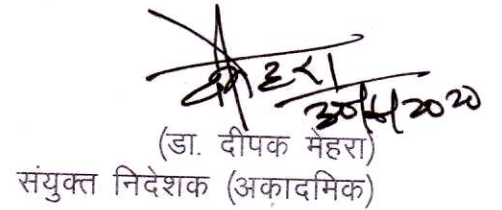 मेहरा
30/6/2020
(डा. दीपक मेहरा)
संयुक्त निदेशक (अकादमिक)